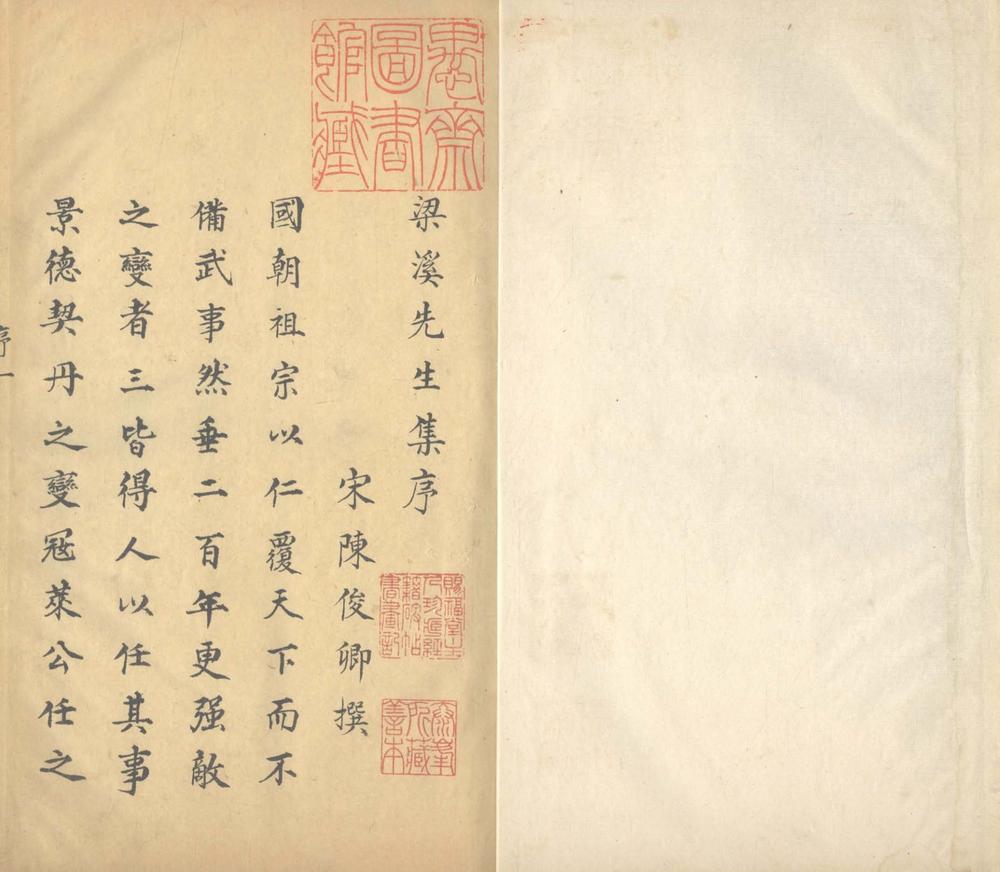 梁溪先生集序
宋陳俊卿撰
國朝祖宗以仁覆天下而不
備武事然垂二百年更强敵
之變者三皆得人以任其事
景德契丹之變冦萊公任之
序一
圖書
館藏
所藏
善本